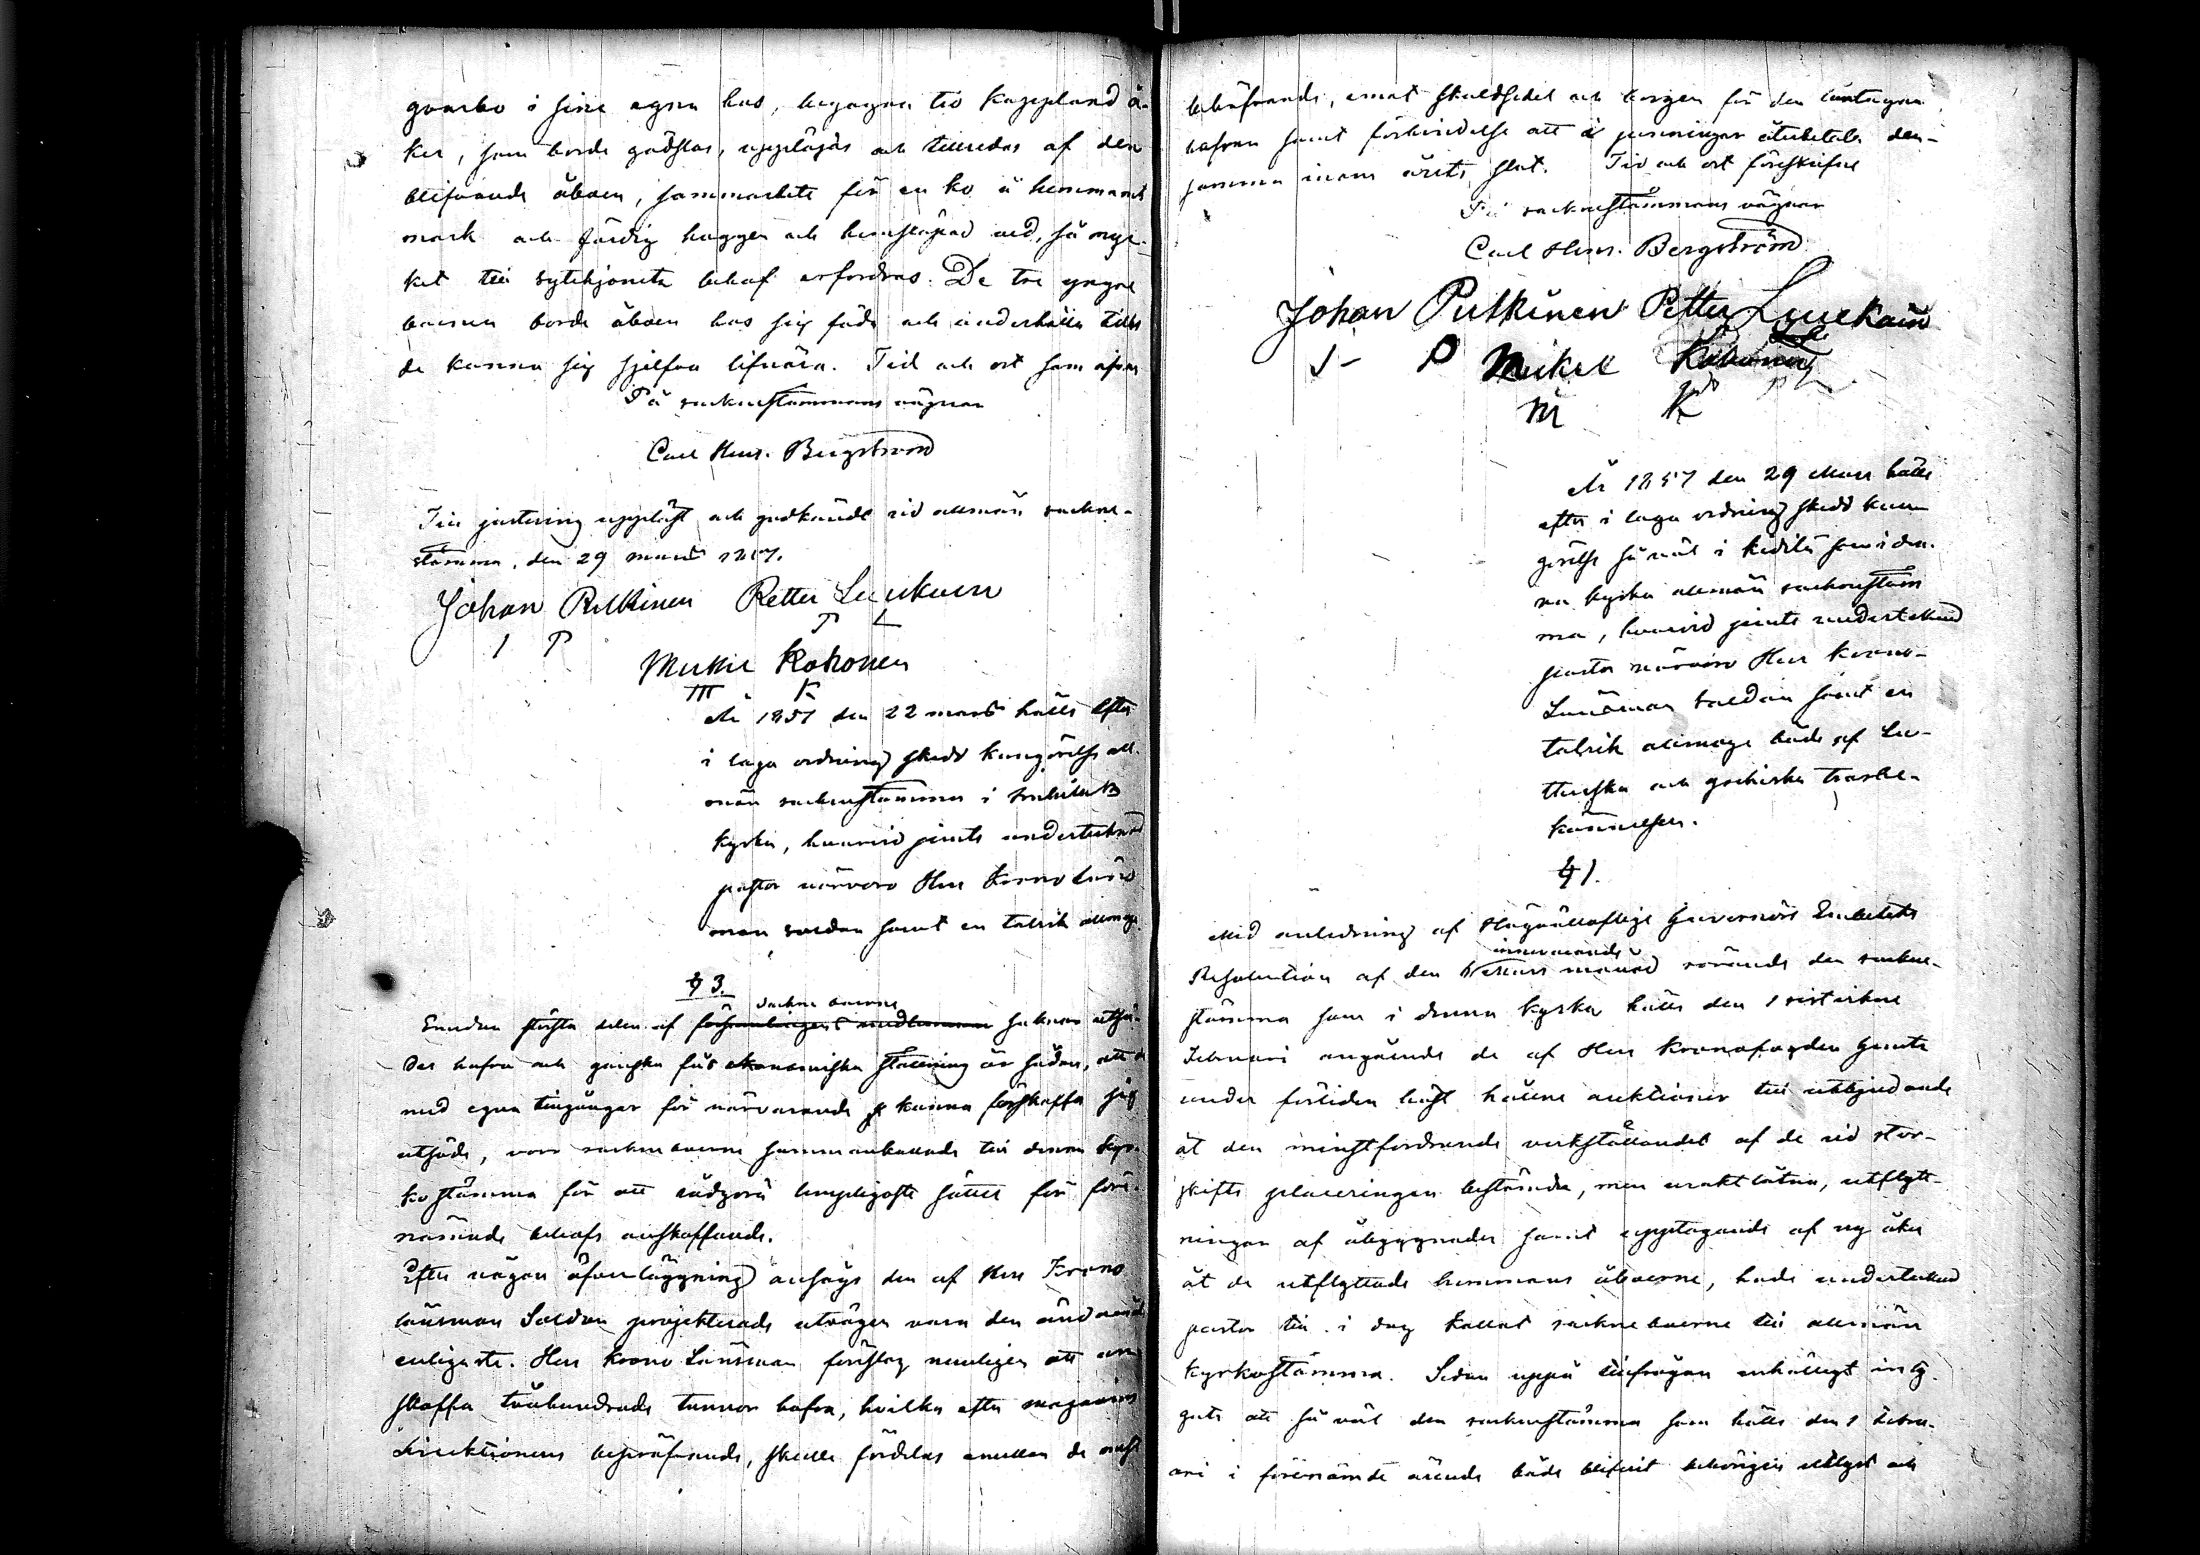 qvarbo i sine egna hus, begagna tio kappland å-
ker, som borde gödslas, upplöjas och tilredas af den
blifvande åboen, sommarbete för en ko å hemmanets
mark och färdig huggen och hemsläpad ved, så myc-
ket till sytehjonets behof erfordras. De tre yngre
barnen borde åboen hos sig föda och underhålla tills
de kunna sig sjelfva lifnära. Tid och ort som ofvan
På sockenstämmans vägnar
Carl Henr. Bergström
Till justering uppläst och godkändt vid allmän sockne-
stämma, den 29 mars 1857.
Johan Putkinen Petter Luukain
I P P L
Mickel Kokonen
M K
År 1857 den 22 mars hölls efter
i laga ordning skedd kungörelse all-
män sockenstämma i
kyrka, hvarvid jemte undertecknad
pastor närvoro Herr Krono Läns
man Soldan samt en talrik allmoge.
§ 3.
sockne boerne
Emedan största delen af församlingens medlemmar saknar utsä-
des hafra och ganska få ekonomiska ställning är sådan, att de
med egna tingångar för närvarande kunna förskaffa sig
utsäde, voro socknboerne sammankallade till denna kyr-
kostämma för att rådgöra lämpligaste sättet för före-
nämnde behofs anskaffande.
Efter någon öfverläggning ansågs den af Herr Krono
länsman Soldan projekterade utvägen vara den ändamåls
enligaste. Herr Krono Länsman föreslog nemligen att an
skaffa tvåhundrade tunnor hafra, hvilka efter magasins
Direktionens bepröfvande, skulle fördelas emellan de mest
behöfvande, emot skuldsedel och borgen för den
hafran samt förbindelse att i penningar återbetala den-
samma inom årets slut. Tid och ort föreskrifne
På sockenstämmans vägnar
Carl Henr. Bergström
Johan Putkinen Petter Luukain
J - P Mickel Kokonen
M K
År 1857 den 29 Mars hölls
efter i laga ordning skedd kun-
görelse så väl i som i den-
na kyrka allmän sockenstäm
ma, hvarvid jemte undertecknad
pastor närvoro Herr Krono-
Länsman Soldan samt en
talrik allmoge både af Lu-
therska och grekiska trosbe-
kännelsen.
§ 1.
Med anledning af Högvällofliga Guvernörs Embetets
innevarande
Resolution af den Mars månad rörande den sockne-
stämma som i denna kyrka hölls den 1 sistvikne
Februari angående de af Herr Kronofogden
under förtiden hållne auktioner till utbjudande
åt den minstfordrande verkställandet af de vid stor-
skifts placeringen bestämda, men uraktlåtna, utflytt-
ningar af åbyggnader samt upptagande af ny åker
åt de utflyttade hemmans åboerne, hade undertecknad
pastor till i dag kallat socknboerne till allmän
kyrkostämma. Sedan uppå tillfrågan enhälligt
gats att så väl den sockenstämma som hölls den 1 Febru-
ari i förenämnde ärende både blifvit behörigen utlyst och